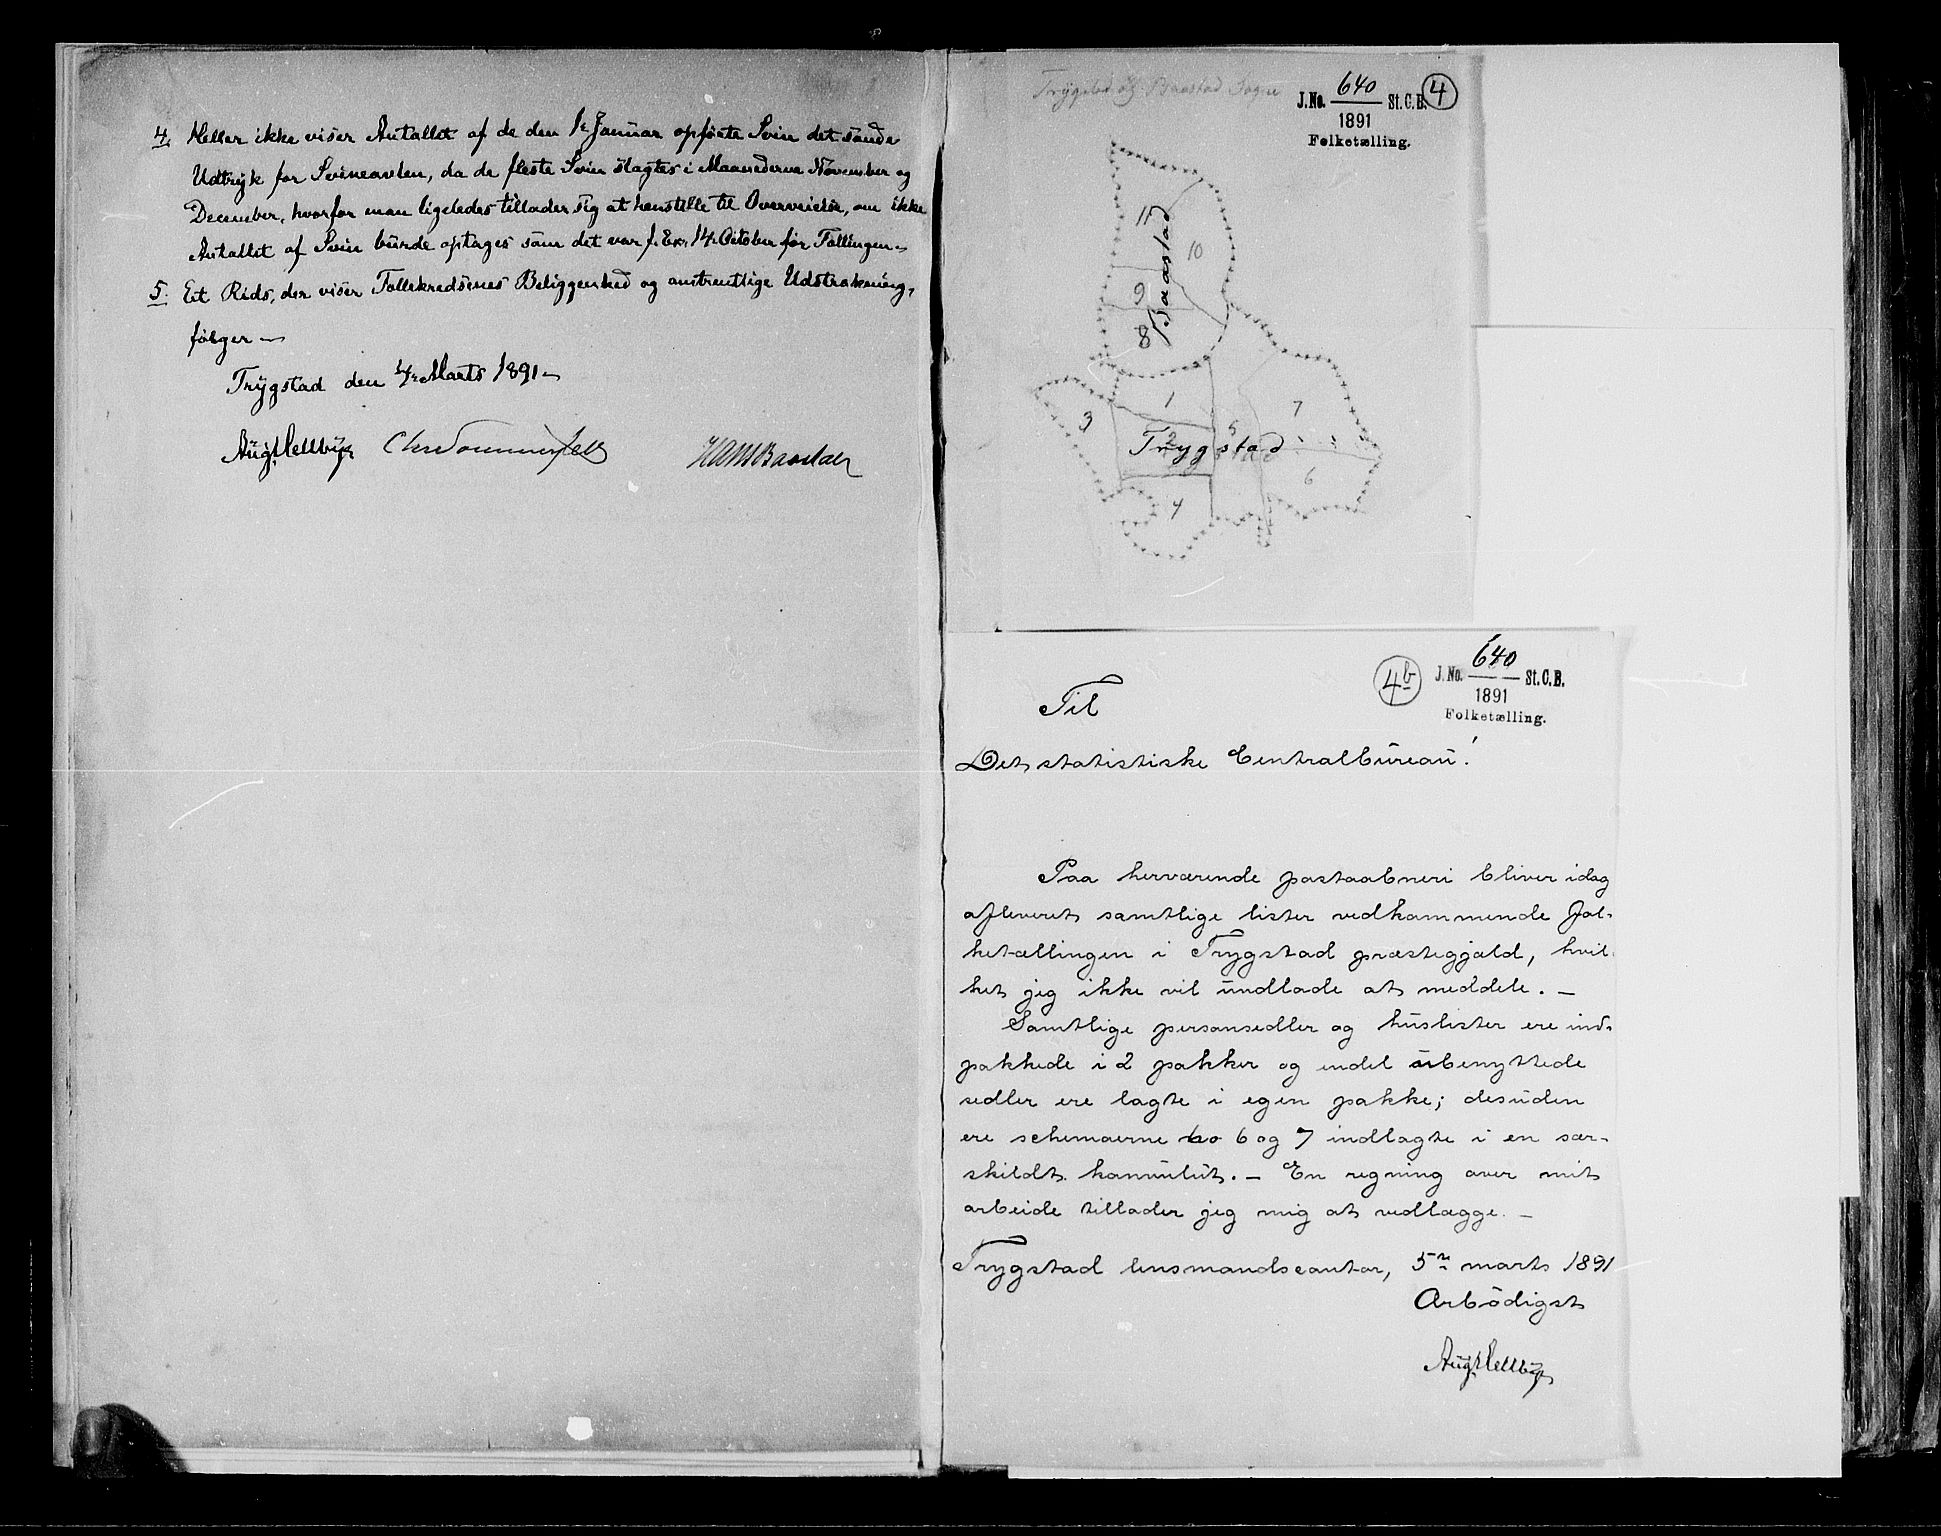 4. Heller ikke viser Antallet af de den 1e Januar opførte Svin det sande
Udtryk for Svineavlen, da de fleste Svin slagtes i Maanederne November og
December, hvorfor man ligeledes tillader sig at henstille til Overveielse, om ikke
Antallet af Svin burde optages som det var f. Ex. 14. October før Tællingen.
5. Et Rids, der viser Tællekredsenes Beliggenhed og omtrentlige Udstrækning,
følger —
Trygstad den 4de Marts 1891 —
Aug. Hellbye
Trygstad og Baastad Sogne
J.No. 640 St.C.B. 4
1891
Folketælling.
11
10
9
8
Baastad
1
7
3
2
5
Trygstad
6
4
4b
J.No. 640 St.C.B.
1891
Folketælling.
Til
Det statistiske Centralbureau!
Paa herværende postaabneri bliver idag
afleveret samtlige lister vedkommende fol-
ketællingen i Trygstad præstegjæld, hvil-
ket jeg ikke vil undlade at meddele. —
Samtlige personsedler og huslister ere ind-
pakkede i 2 pakker og endel ubenyttede
sedler ere lagte i egen pakke; desuden
ere schemaerne 6 og 7 indlagte i en sær-
skildt konvulut. — En regning over mit
arbeide tillader jeg mig at vedlægge. —
Trygstad lensmandscontor, 5te marts 1891
Ærbødigst
Aug. Hellbye